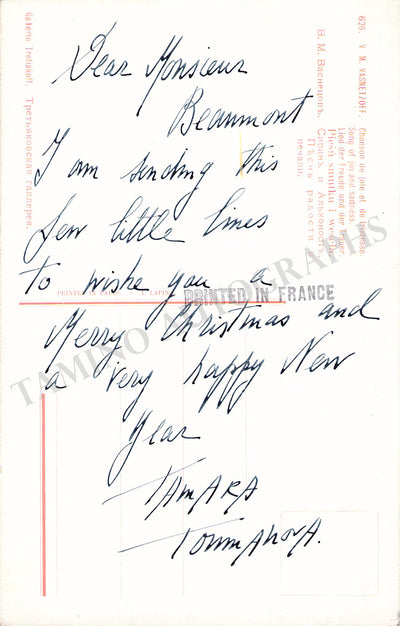 Dear Monsieur
Beaumont
I am sending this
few little lines
to wishe you a
Merry Christmas and
a very happy New
Year
TAMARA
TOUMANOVA.
PRINTED IN FRANCE
TAMINO AUTOGRAPHS
626. V. M. VASNETZOFF.
Chanson de joie et de tristesse.
Song of joy and sadness.
Lied der Freude und der Trauer.
В. М. Васнецовъ.
Сиринъ и Альконостъ.
Пѣснь радости и
печали.
Galerie Tretiakoff. Третьяковская галлерея.